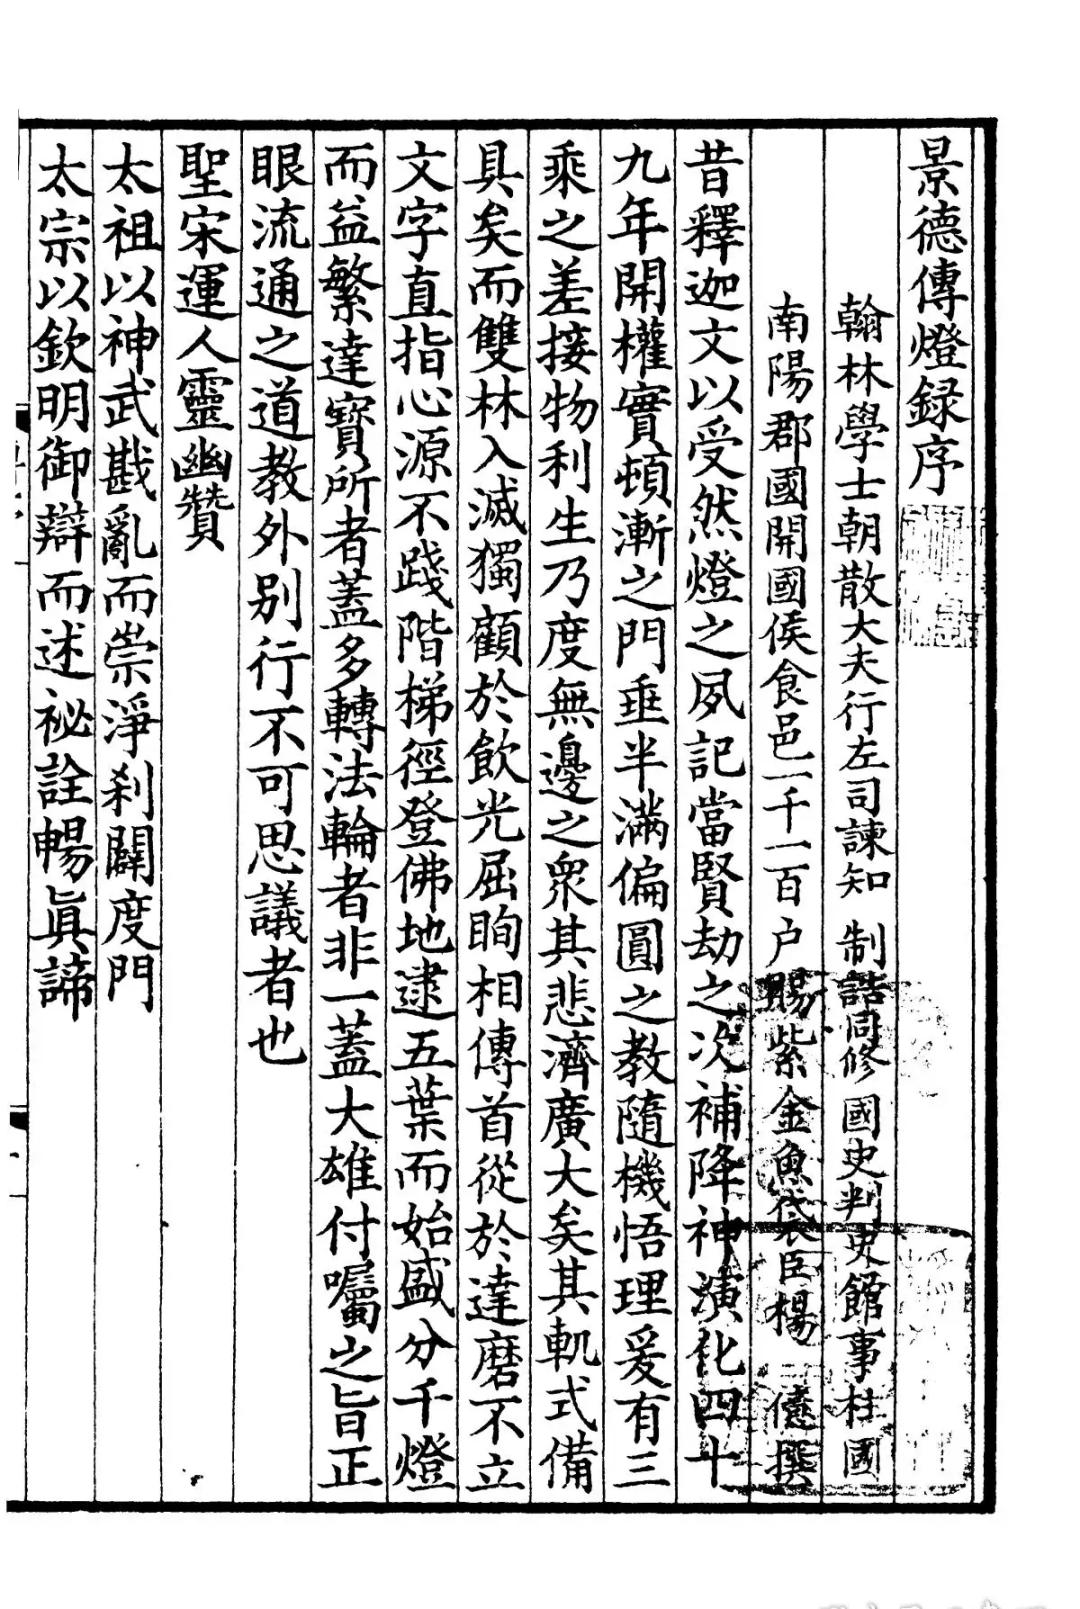 景德傳燈録序
翰林學士朝散大夫行左司諫知 制誥同修 國史判史館事柱國
南陽郡國開國侯食邑一千一百户賜紫金魚袋臣楊 億撰
昔釋迦文以受然燈之夙記當賢劫之次補降神演化四十
九年開權實頓漸之門垂半滿偏圓之教隨機悟理爰有三
乘之差接物利生乃度無邊之衆其悲濟廣大矣其軌式備
具矣而雙林入滅獨顧於飲光屈眴相傳首從於達磨不立
文字直指心源不踐階梯徑登佛地逮五葉而始盛分千燈
而益繁達寶所者蓋多轉法輪者非一蓋大雄付囑之旨正
眼流通之道教外别行不可思議者也
聖宋運人靈幽贊
太祖以神武戡亂而崇淨刹闢度門
太宗以欽明御辯而述祕詮暢眞諦